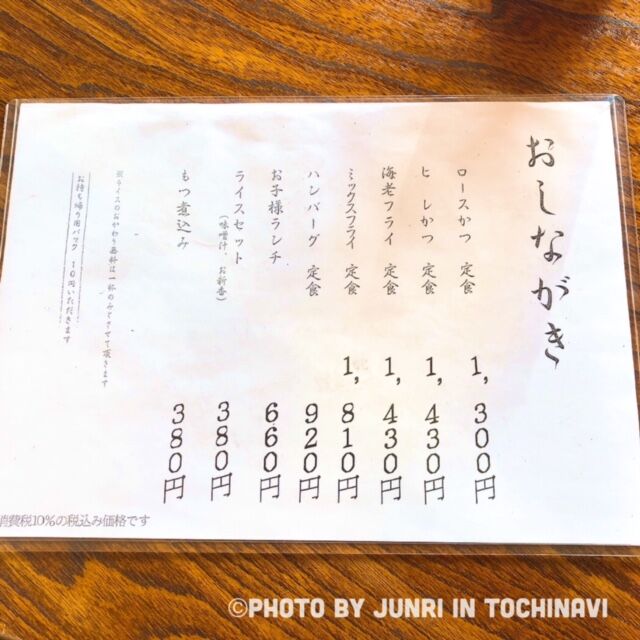 おしながき
ロースかつ 定食 1,300円
ヒレかつ 定食 1,430円
海老フライ 定食 1,430円
ミックスフライ 定食 1,810円
ハンバーグ 定食 920円
お子様ランチ 660円
ライスセット 380円
(味噌汁、お新香)
もつ煮込み 380円
※ライスのおかわり無料は一杯のみとさせて頂きます
お持ち帰り用パック 10円いただきます
消費税10%の税込み価格です
©PHOTO BY JUNRI IN TOCHINAVI